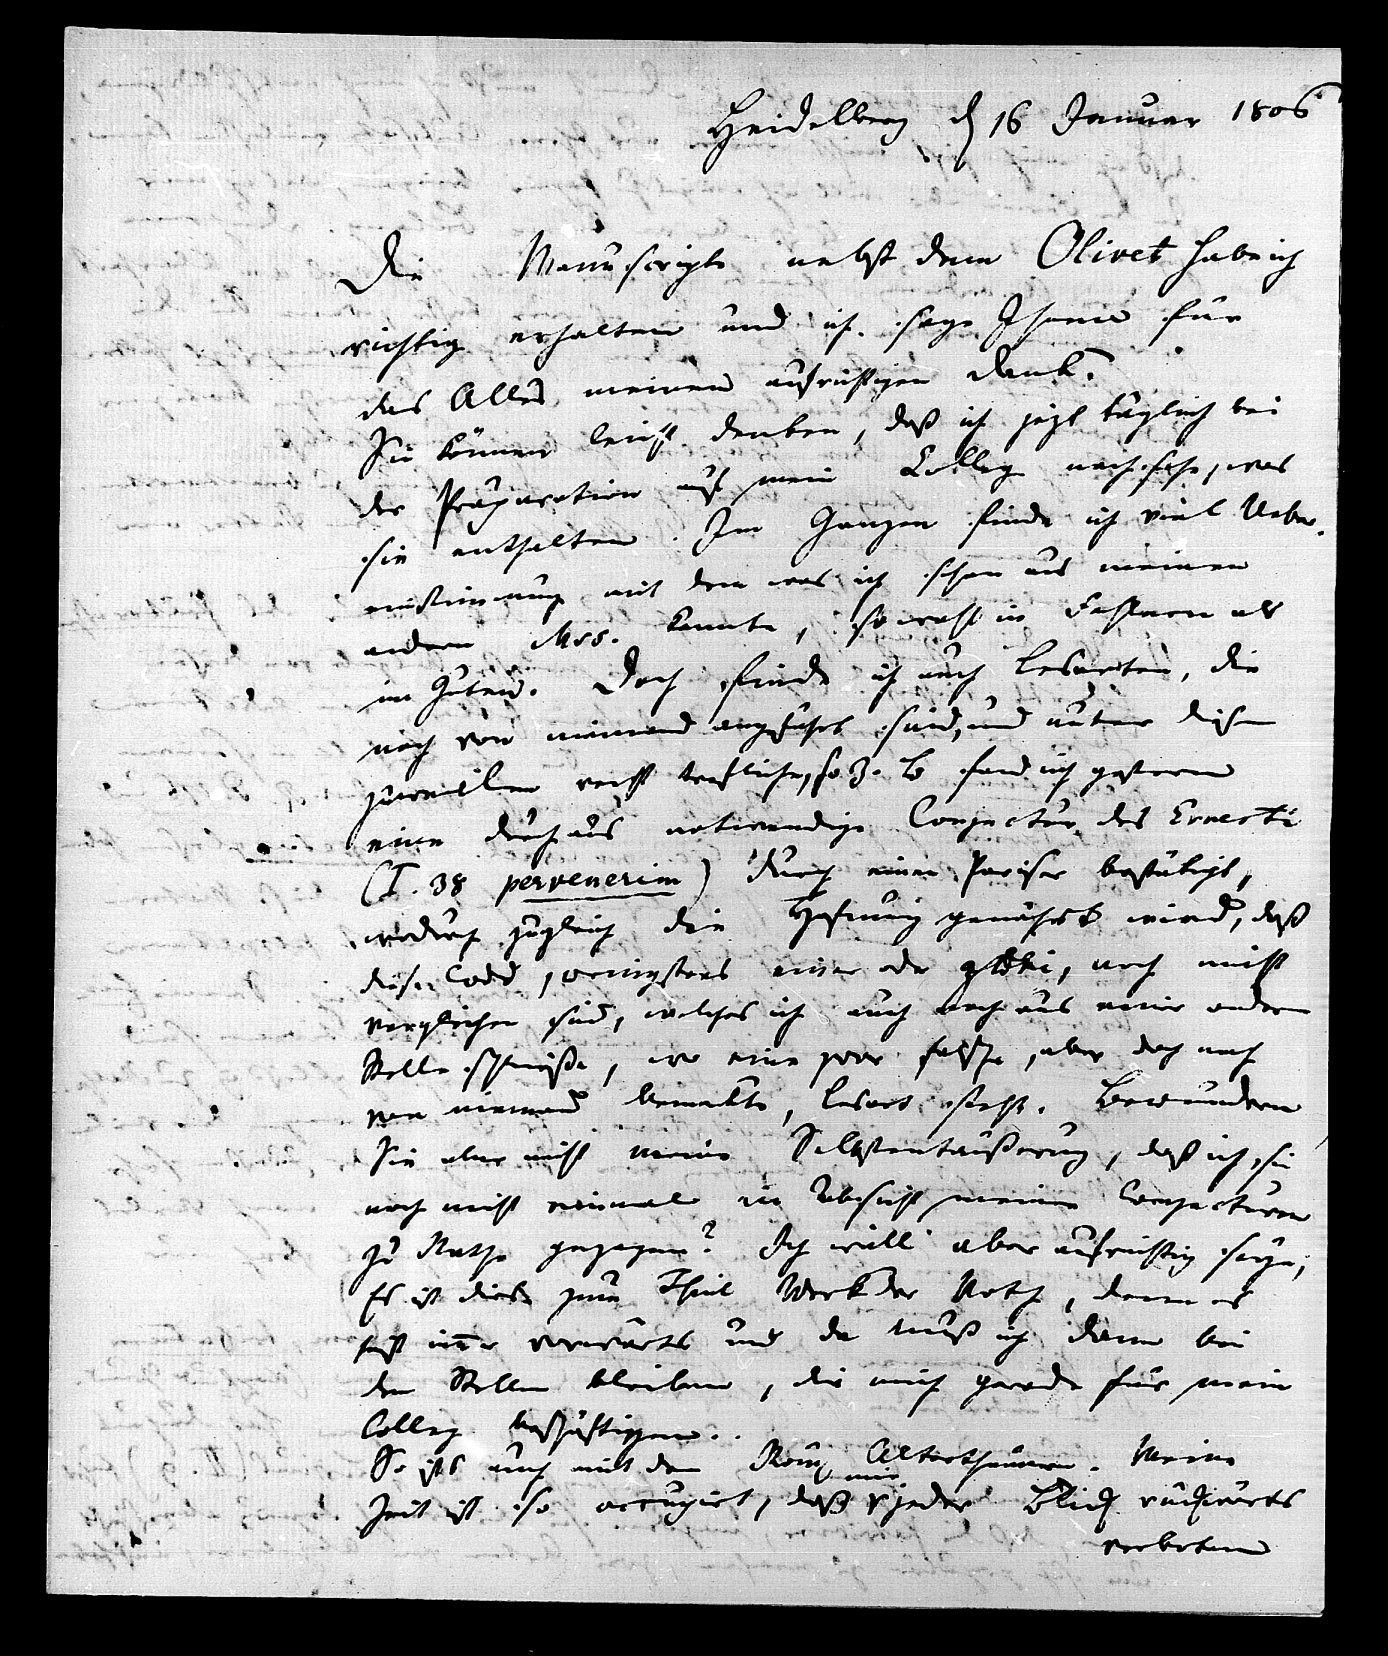 Heidelberg d 16 Januar 1806
Die Manuscripte nebst dem Olivet habe ich
richtig erhalten und ich sage Ihnen für
das Alles meinen aufrichtigen Dank.
Sie können leicht denken, daß ich jezt täglich bei
der Präparation auf mein Colleg nachsehe, was
sie enthalten. Im Ganzen finde ich viel Ueber
einstimmung mit dem was ich schon aus meinen
andern Mss. kannte, sowohl in Fehlern als
im Guten. Doch finde ich auch Lesarten, die
noch von niemand angeführt sind, und unter diesen
zuweilen recht trefliche, so z. B fand ich gestern
eine durchaus notwendige Conjectur des Ernesti
(I. 38 pervenerim) durch einen Pariser bestätigt,
wodurch zugleich die Hofnung genährt wird, daß
diese Codd, wenigstens einer oder, noch nicht
verglichen sind, welches ich auch noch aus einer andern
Stelle schließe, wo eine zwar falsche, aber doch noch
von niemand bemerkte, Lesart steht. Bewundern
Sie aber nicht meine Selbstentäußerung, daß ich sie
noch nicht einmal in Absicht meiner Conjecturen
zu Rathe gezogen? Ich will aber aufrichtig sagen,
Es ist dies zum Theil Werk der Noth, denn es
heist im̄er vorwärts und da muß ich dann bei
den Stellen bleiben, die mich gerade für mein
Colleg beschäftigen.
So ists auch mit den Röm Alterthümern. Meine
Zeit ist so occupirt, daß mir jeder Blick rückwärts
verboten